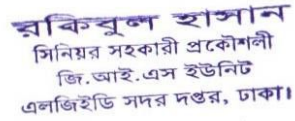 রকিবুল হাসান
সিনিয়র সহকারী প্রকৌশলী
জি.আই.এস ইউনিট
এলজিইডি সদর দপ্তর, ঢাকা।